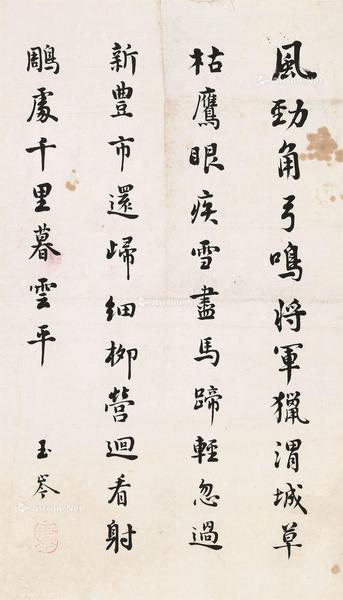 風勁角弓鳴將軍獵渭城草
枯鷹眼疾雪盡馬蹄輕忽過
新豊市還歸細柳營迴看射
鵰處千里暮雲平
玉岑